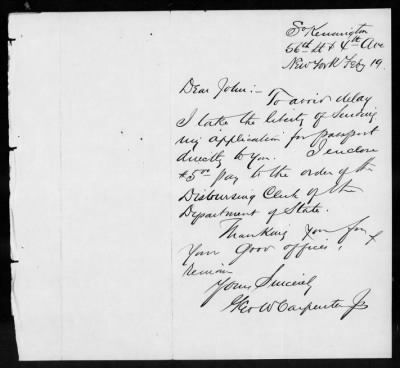 So Kennington
66th St & 4th Ave
New York Feby 19.
Dear John:- To avoid delay
I take the liberty of sending
my application for passport
directly to you. I enclose
$5.00 pay to the order of the
Disbursing Clerk of the
Department of State.
Thanking you for
your good offices, I
remain
Yours Sincerely
Geo W Carpenter Jr